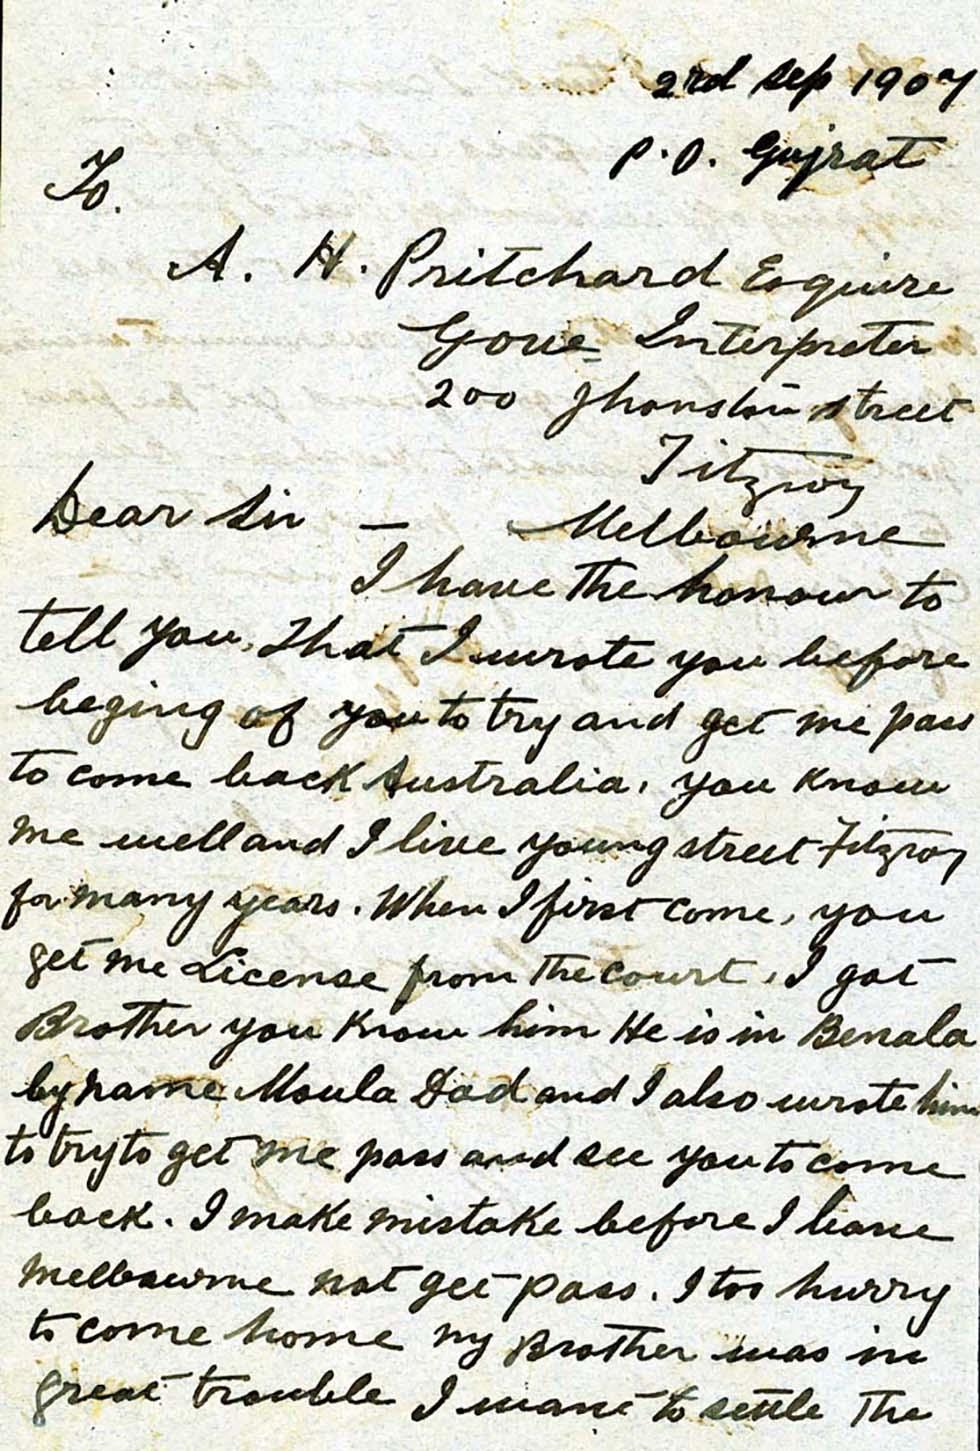 2rd Sep 1907
P.O. Gujrat
To.
A. H. Pritchard Esquire
Gove Interpreter
200 Jhonston street
Fitzroy
Melbourne
Dear Sir —
I have the honour to
tell you, That I wrote you before
beging of you to try and get me pass
to come back Australia, you know
me well and I live young street Fitzroy
for many years. When I first come, you
get me License from the court, I got
Brother you know him He is in Benala
by name Moula Dad and I also wrote him
to try to get me pass and see you to come
back. I make mistake before I leave
Melbourne not get pass. I too hurry
to come home my Brother was in
great trouble I want to settle The